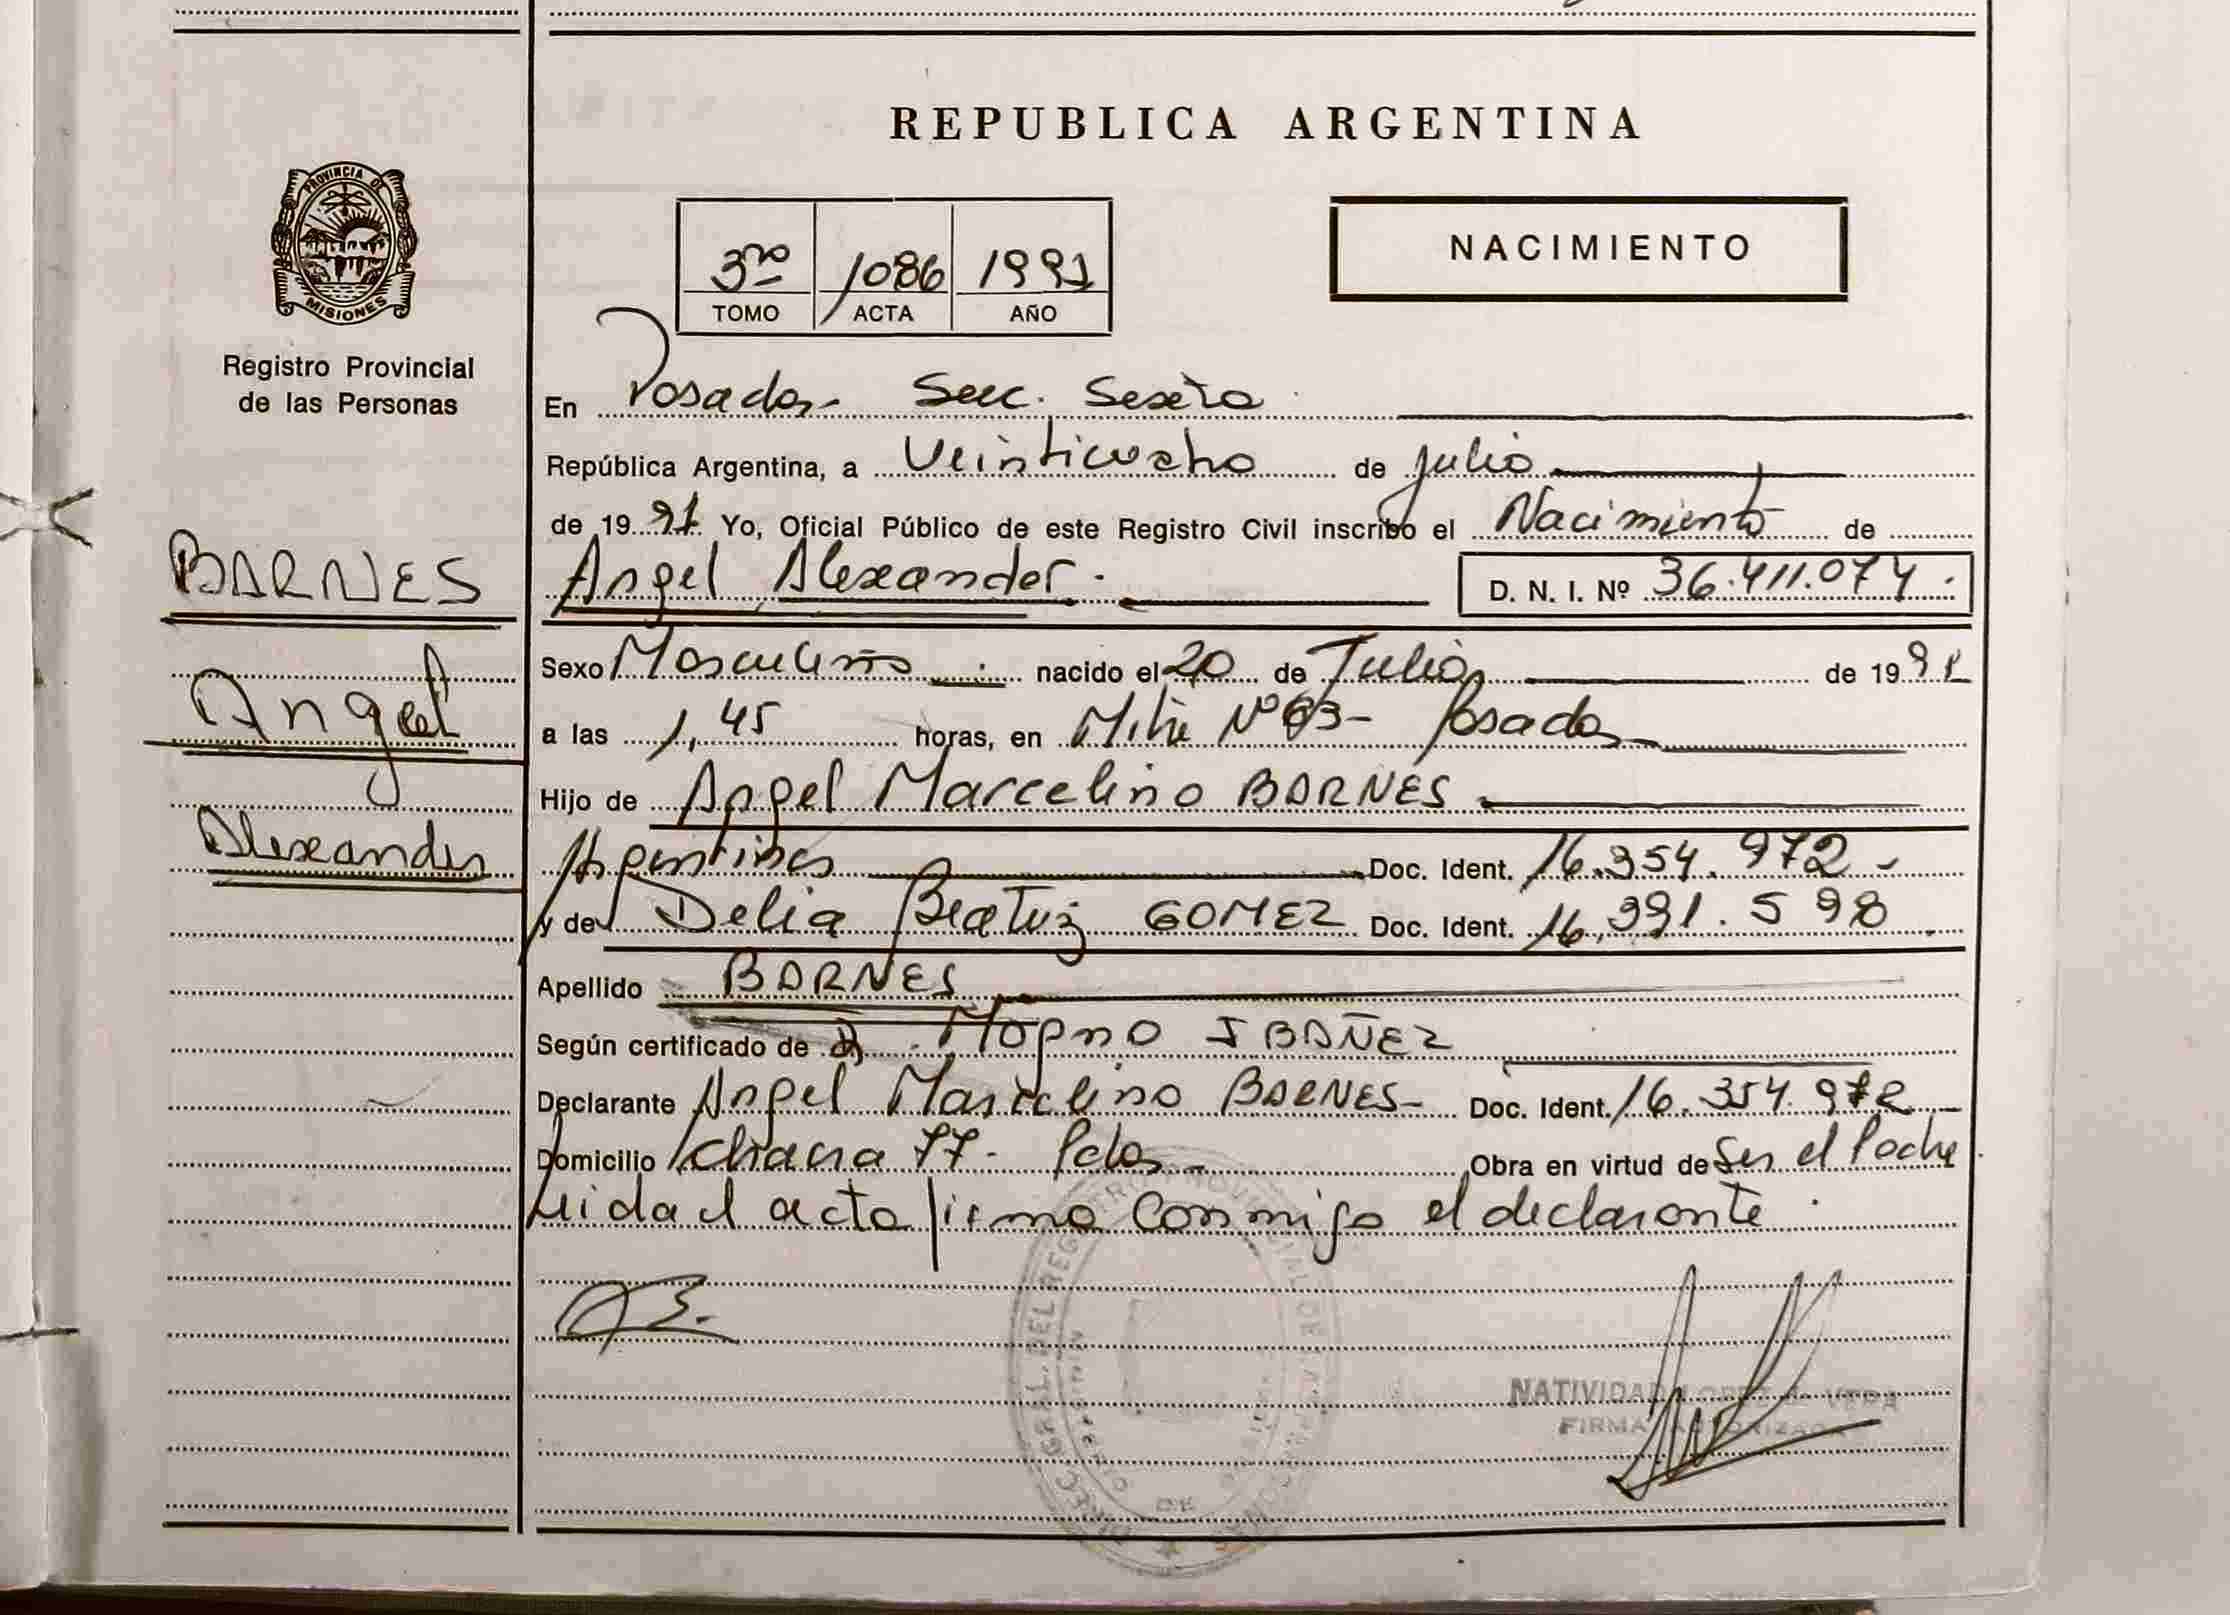 REPUBLICA ARGENTINA
PROVINCIA DE
MISIONES
Registro Provincial
de las Personas
NACIMIENTO
3ro 1086 1991
TOMO ACTA AÑO
En Posadas Secc. Sexta
República Argentina, a Veinticuatro de julio
de 1991 Yo, Oficial Público de este Registro Civil inscribo el Nacimiento de
Angel Alexander. D. N. I. Nº 36.411.074.
BARNES
Angel
Alexander
Sexo Masculino nacido el 20 de Julio de 1991
a las 1,45 horas, en Mitre Nº 63- Posadas
Hijo de Angel Marcelino BARNES
Argentinos Doc. Ident. 16.354.972-
y de Delia Beatriz GOMEZ Doc. Ident. 16.391.598
Apellido BARNES
Según certificado de IBAÑEZ
Declarante Angel Marcelino BARNES- Doc. Ident. 16.354.972
Domicilio Chacra 77- Pdas Obra en virtud de Ser el Padre
Leida el acta firma Conmigo el declarante.
NATIVIDAD LOPEZ de VERA
FIRMA AUTORIZADA